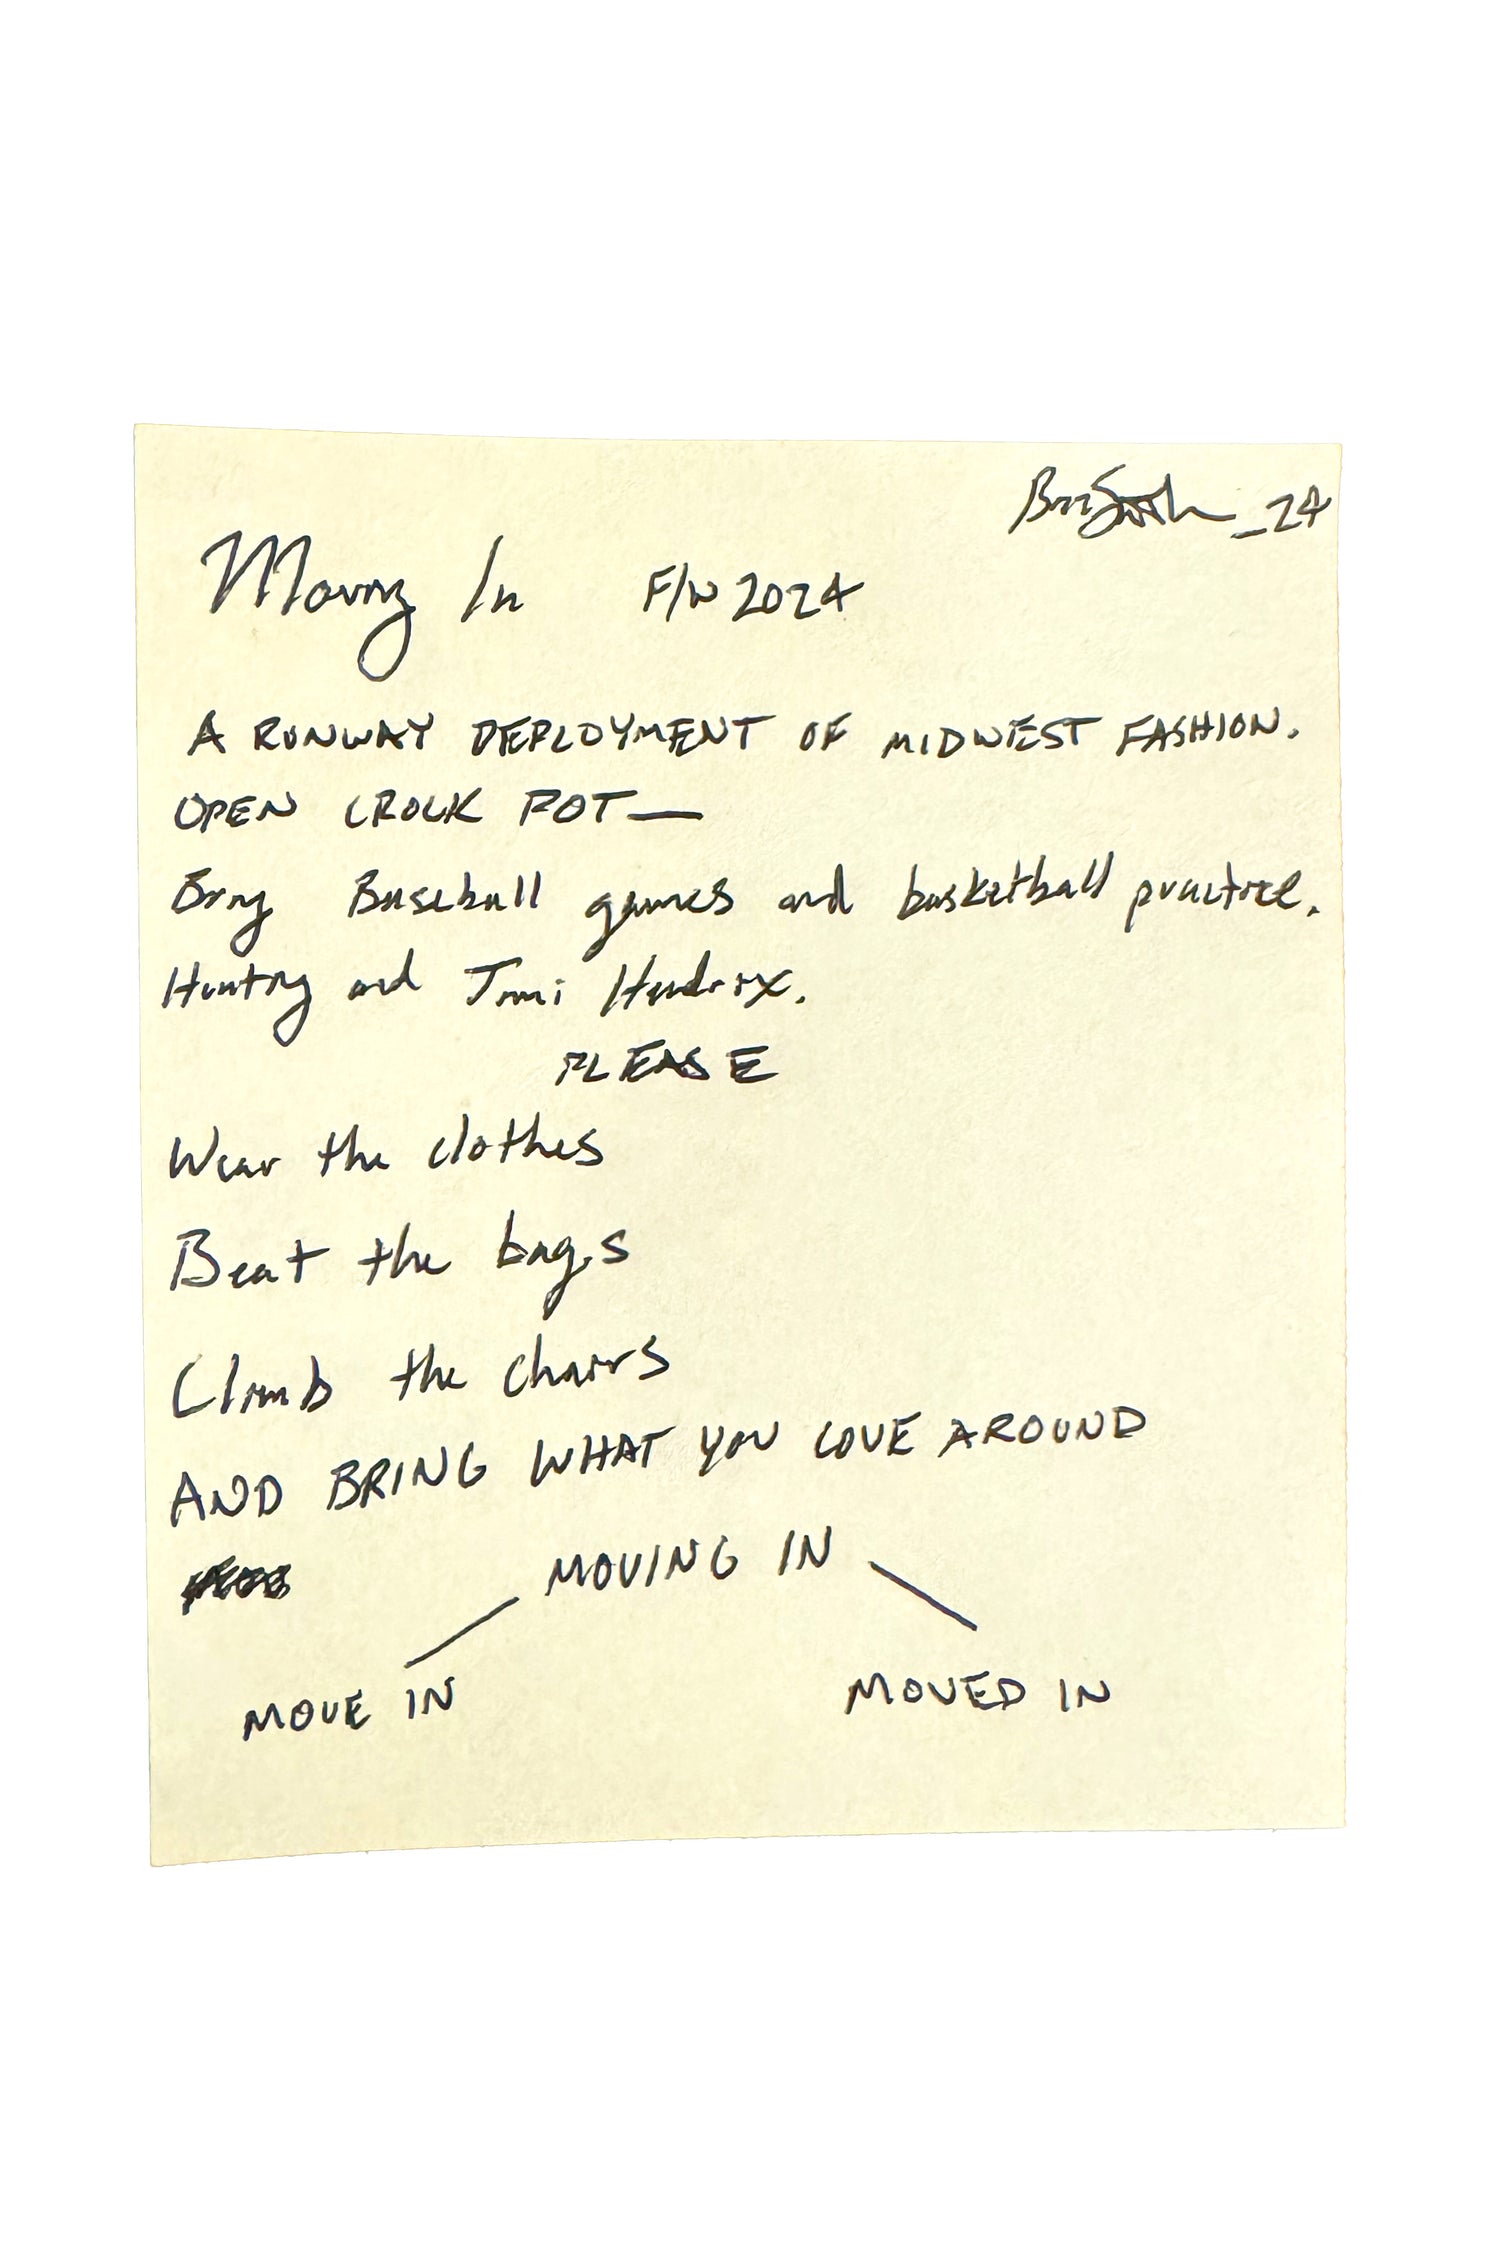 _24
Moving In F/W 2024
A RUNWAY DEPLOYMENT OF MIDWEST FASHION.
OPEN CROCK POT—
Bring Baseball games and basketball practice.
Hunting and Jimi Hendrix.
PLEASE
Wear the clothes
Beat the bags
Climb the chairs
AND BRING WHAT YOU LOVE AROUND
MOVING IN
MOVE IN MOVED IN